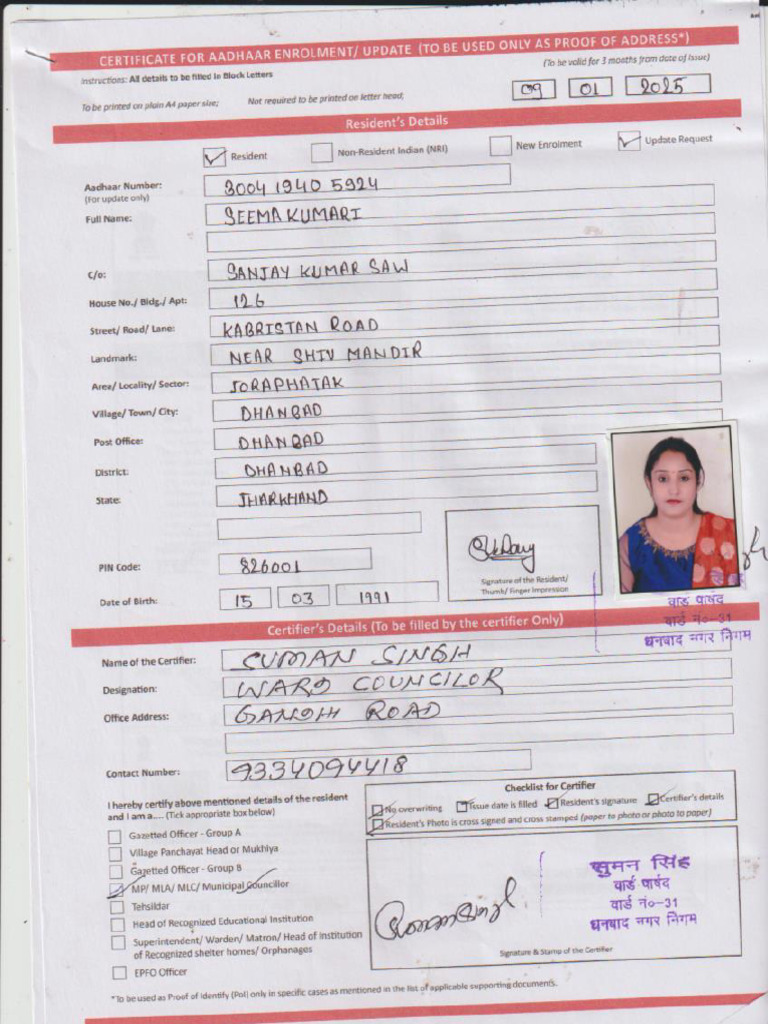 CERTIFICATE FOR AADHAAR ENROLMENT/ UPDATE (TO BE USED ONLY AS PROOF OF ADDRESS*)
Instructions: All details to be filled in Block Letters
(To be valid for 3 months from date of issue)
To be printed on plain A4 paper size; Not required to be printed on letter head;
09 01 2025
Resident's Details
Resident Non-Resident Indian (NRI) New Enrolment Update Request
Aadhaar Number: 3004 1940 5924
(For update only)
Full Name: SEEMA KUMARI
C/o: SANJAY KUMAR SAW
House No./ Bldg./ Apt: 126
Street/ Road/ Lane: KABRISTAN ROAD
Landmark: NEAR SHIV MANDIR
Area/ Locality/ Sector: JORAPHATAK
Village/ Town/ City: DHANBAD
Post Office: DHANBAD
District: DHANBAD
State: JHARKHAND
PIN Code: 826001
Signature of the Resident/
Thumb/ Finger Impression
Date of Birth: 15 03 1991
वार्ड पार्षद
वार्ड नं०-31
धनबाद नगर निगम
Certifier's Details (To be filled by the certifier Only)
Name of the Certifier: SUMAN SINGH
Designation: WARD COUNCILOR
Office Address: GANDHI ROAD
Contact Number: 9334094418
Checklist for Certifier
No overwriting Issue date is filled Resident's signature Certifier's details
Resident's Photo is cross signed and cross stamped (paper to photo or photo to paper)
I hereby certify above mentioned details of the resident
and I am a.... (Tick appropriate box below)
Gazetted Officer - Group A
Village Panchayat Head or Mukhiya
Gazetted Officer - Group B
MP/ MLA/ MLC/ Municipal Councillor
Tehsildar
Head of Recognized Educational Institution
Superintendent/ Warden/ Matron/ Head of Institution
of Recognized shelter homes/ Orphanages
EPFO Officer
सुमन सिंह
वार्ड पार्षद
वार्ड नं०-31
धनबाद नगर निगम
Signature & Stamp of the Certifier
*To be used as Proof of Identify (PoI) only in specific cases as mentioned in the list of applicable supporting documents.